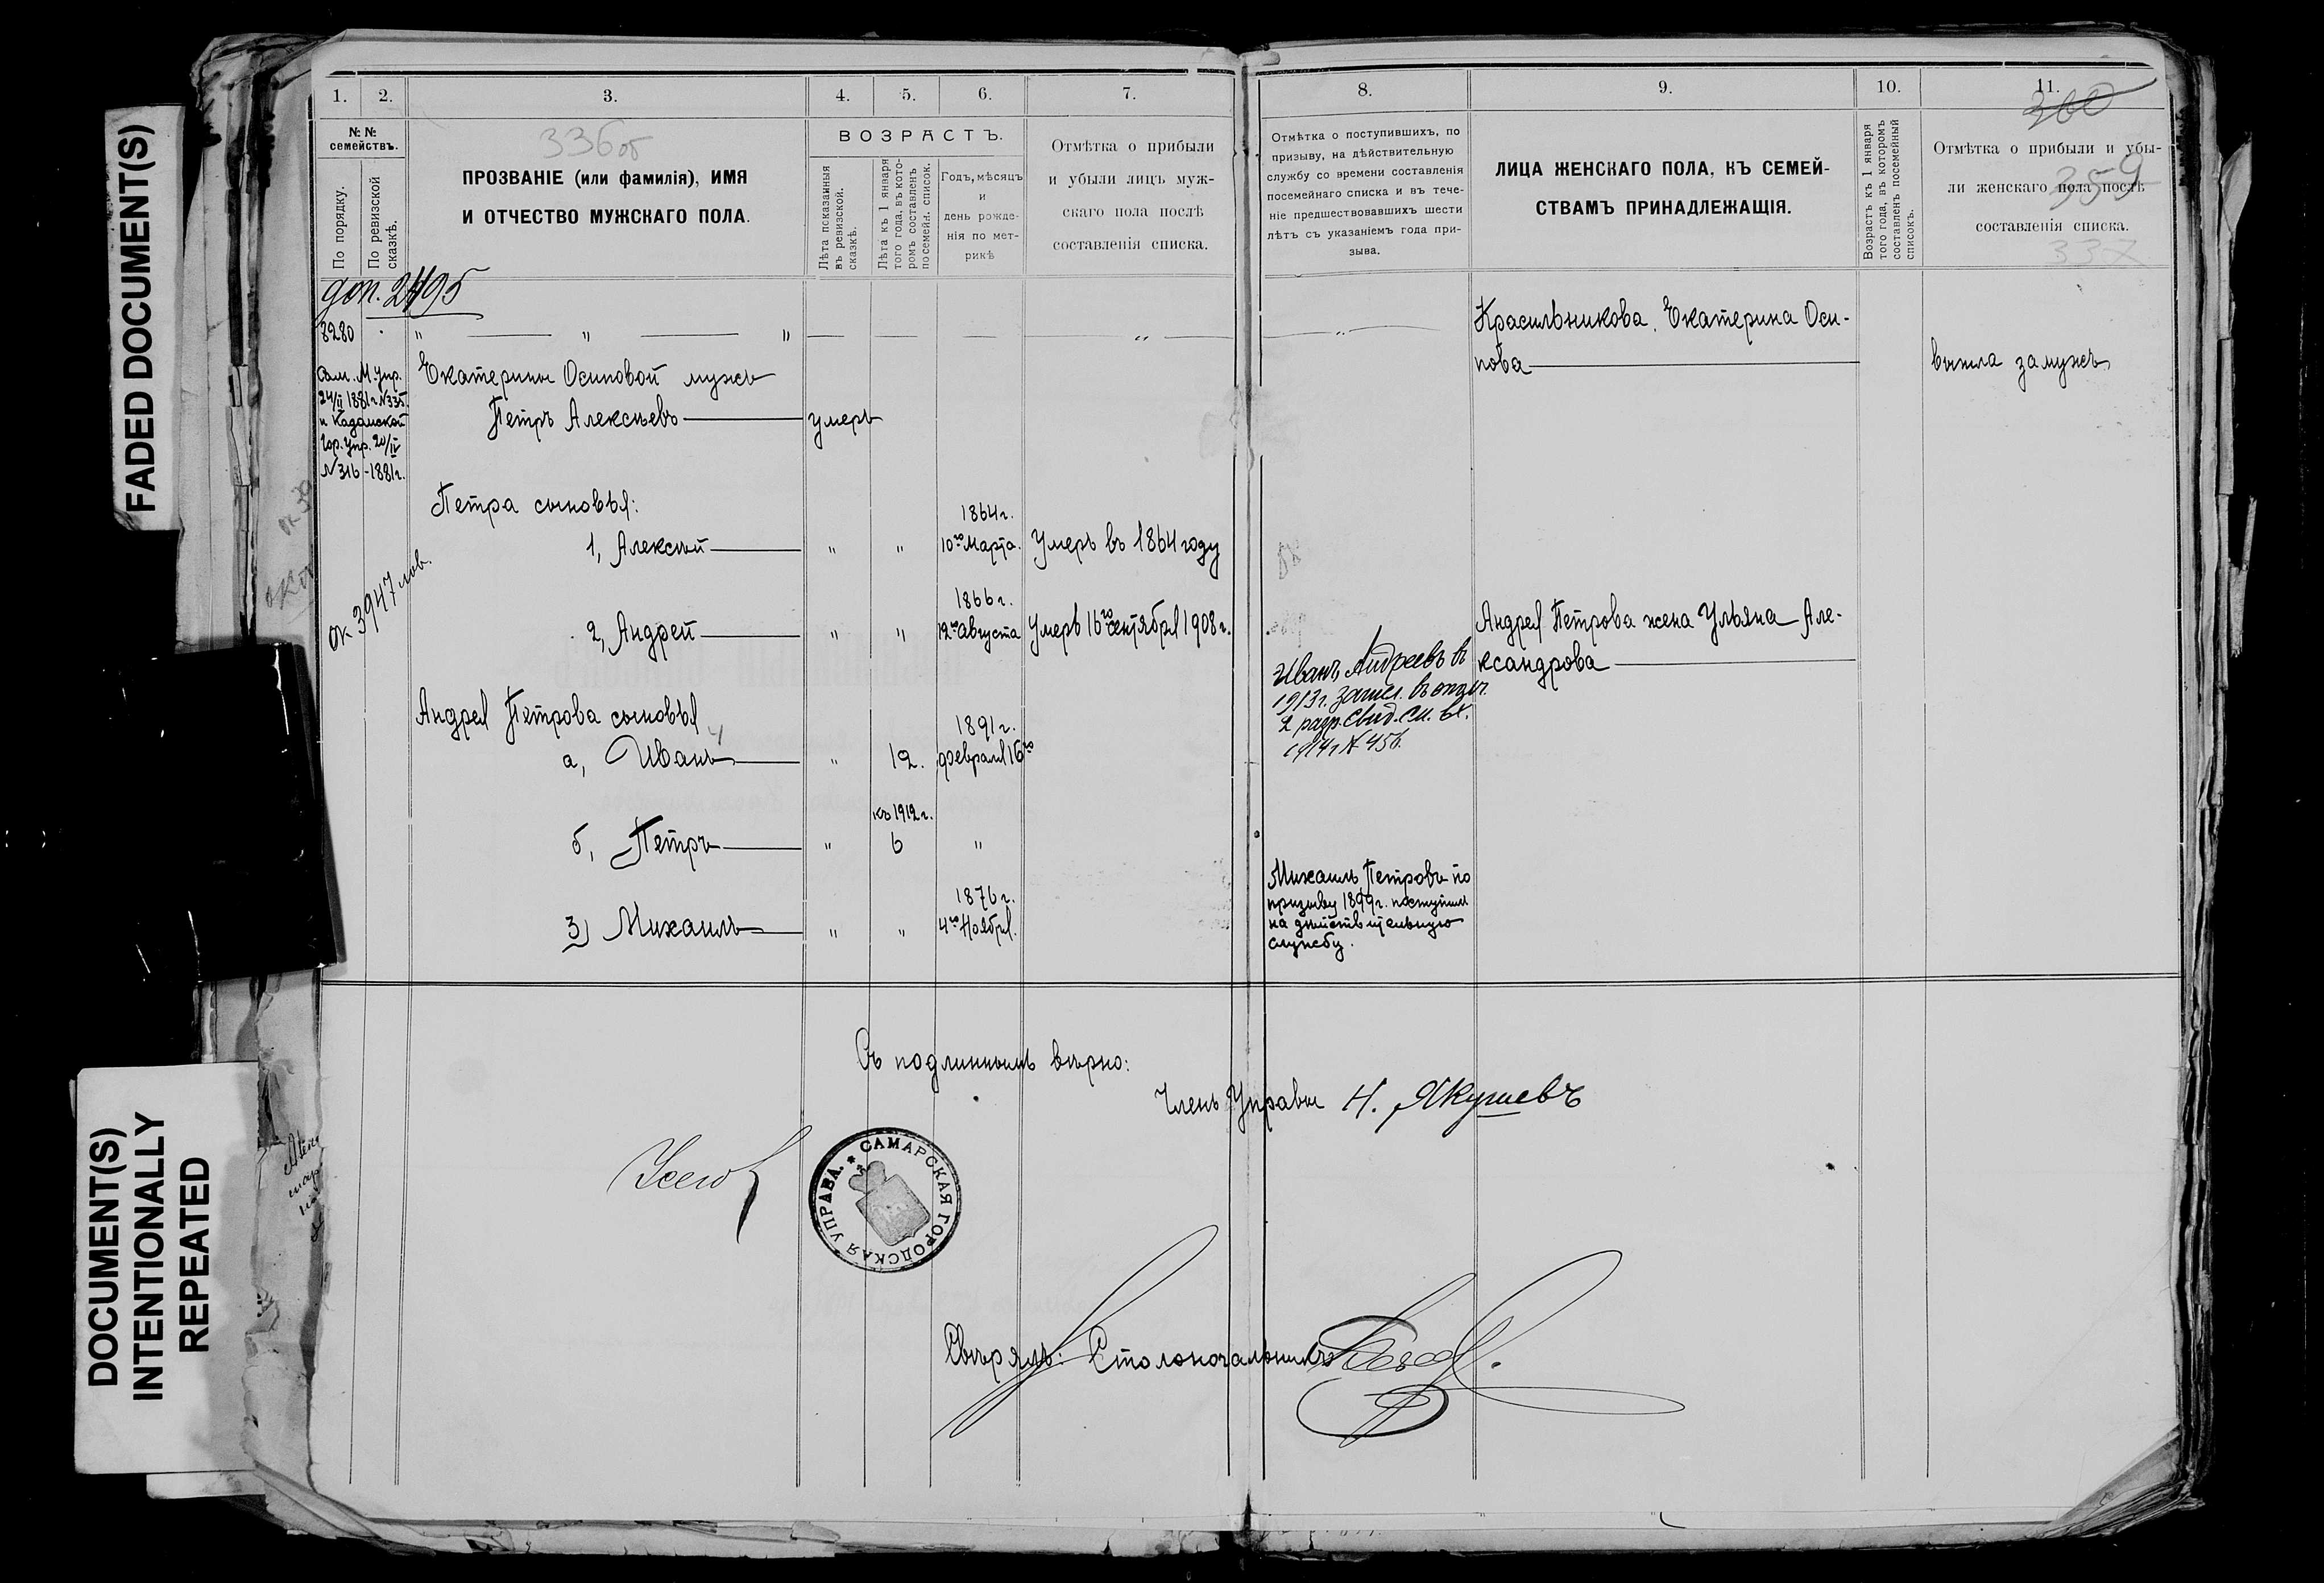 FADED DOCUMENT(S)
DOCUMENT(S)
INTENTIONALLY
REPEATED
1. 2. 3. 4. 5. 6. 7.
№ №
семействъ.
По порядку.
По ревизской
сказкѣ.
336 об
ПРОЗВАНІЕ (или фамилія), ИМЯ
И ОТЧЕСТВО МУЖСКАГО ПОЛА.
ВОЗРАСТЪ.
Лѣта показанныя
въ ревизской
сказкѣ.
Лѣта къ 1 января
того года, въ кото-
ромъ составленъ
посемейн. список.
Годъ, мѣсяцъ
и
день рожде-
нія по мет-
рикѣ
Отмѣтка о прибыли
и убыли лицъ муж-
скаго пола послѣ
составленія списка.
доп. 2495
8280
Сам. М. Упр.
24/II 1881 г. №335.
и Кадомской
Гор. Упр. 20/IV
№316 - 1881 г.
Екатерины Осиповой мужъ
Петръ Алексѣевъ умеръ
Петра сыновья:
1864 г.
1, Алексѣй " " 10го Марта. Умеръ въ 1864 году
ок 3947 нов.
1866 г.
2, Андрей " " 12го Августа Умеръ 16го сентября 1908 г.
Андрея Петрова сыновья
1891 г.
а, Иванъ " 12. февраля 16го
къ 1912 г.
б, Петръ " 6 "
1876 г.
3) Михаилъ " " 4го Ноября.
8. 9. 10. 11.
360
359
337
Отмѣтка о поступившихъ, по
призыву, на дѣйствительную
службу со времени составленія
посемейнаго списка и въ тече-
ніе предшествовавшихъ шести
лѣтъ съ указаніемъ года при-
зыва.
ЛИЦА ЖЕНСКАГО ПОЛА, КЪ СЕМЕЙ-
СТВАМЪ ПРИНАДЛЕЖАЩІЯ.
Возрастъ къ 1 января
того года, въ которомъ
составленъ посемейный
списокъ.
Отмѣтка о прибыли и убы-
ли женскаго пола послѣ
составленія списка.
Красильникова, Екатерина Оси-
пова вышла замужъ
Андрея Петрова жена Ульяна Але-
ксандрова
Иванъ Андреевъ въ
1913 г. зачисл. въ ополч.
2 разр. Свид. см. вх.
1914 г. № 456.
Михаилъ Петровъ по
призыву 1899 г. поступилъ
на дѣйствительную
службу.
Съ подлиннымъ вѣрно:
Членъ Управы Н. Якушевъ
САМАРСКАЯ ГОРОДСКАЯ УПРАВА.
Свѣрялъ: Столоначальникъ